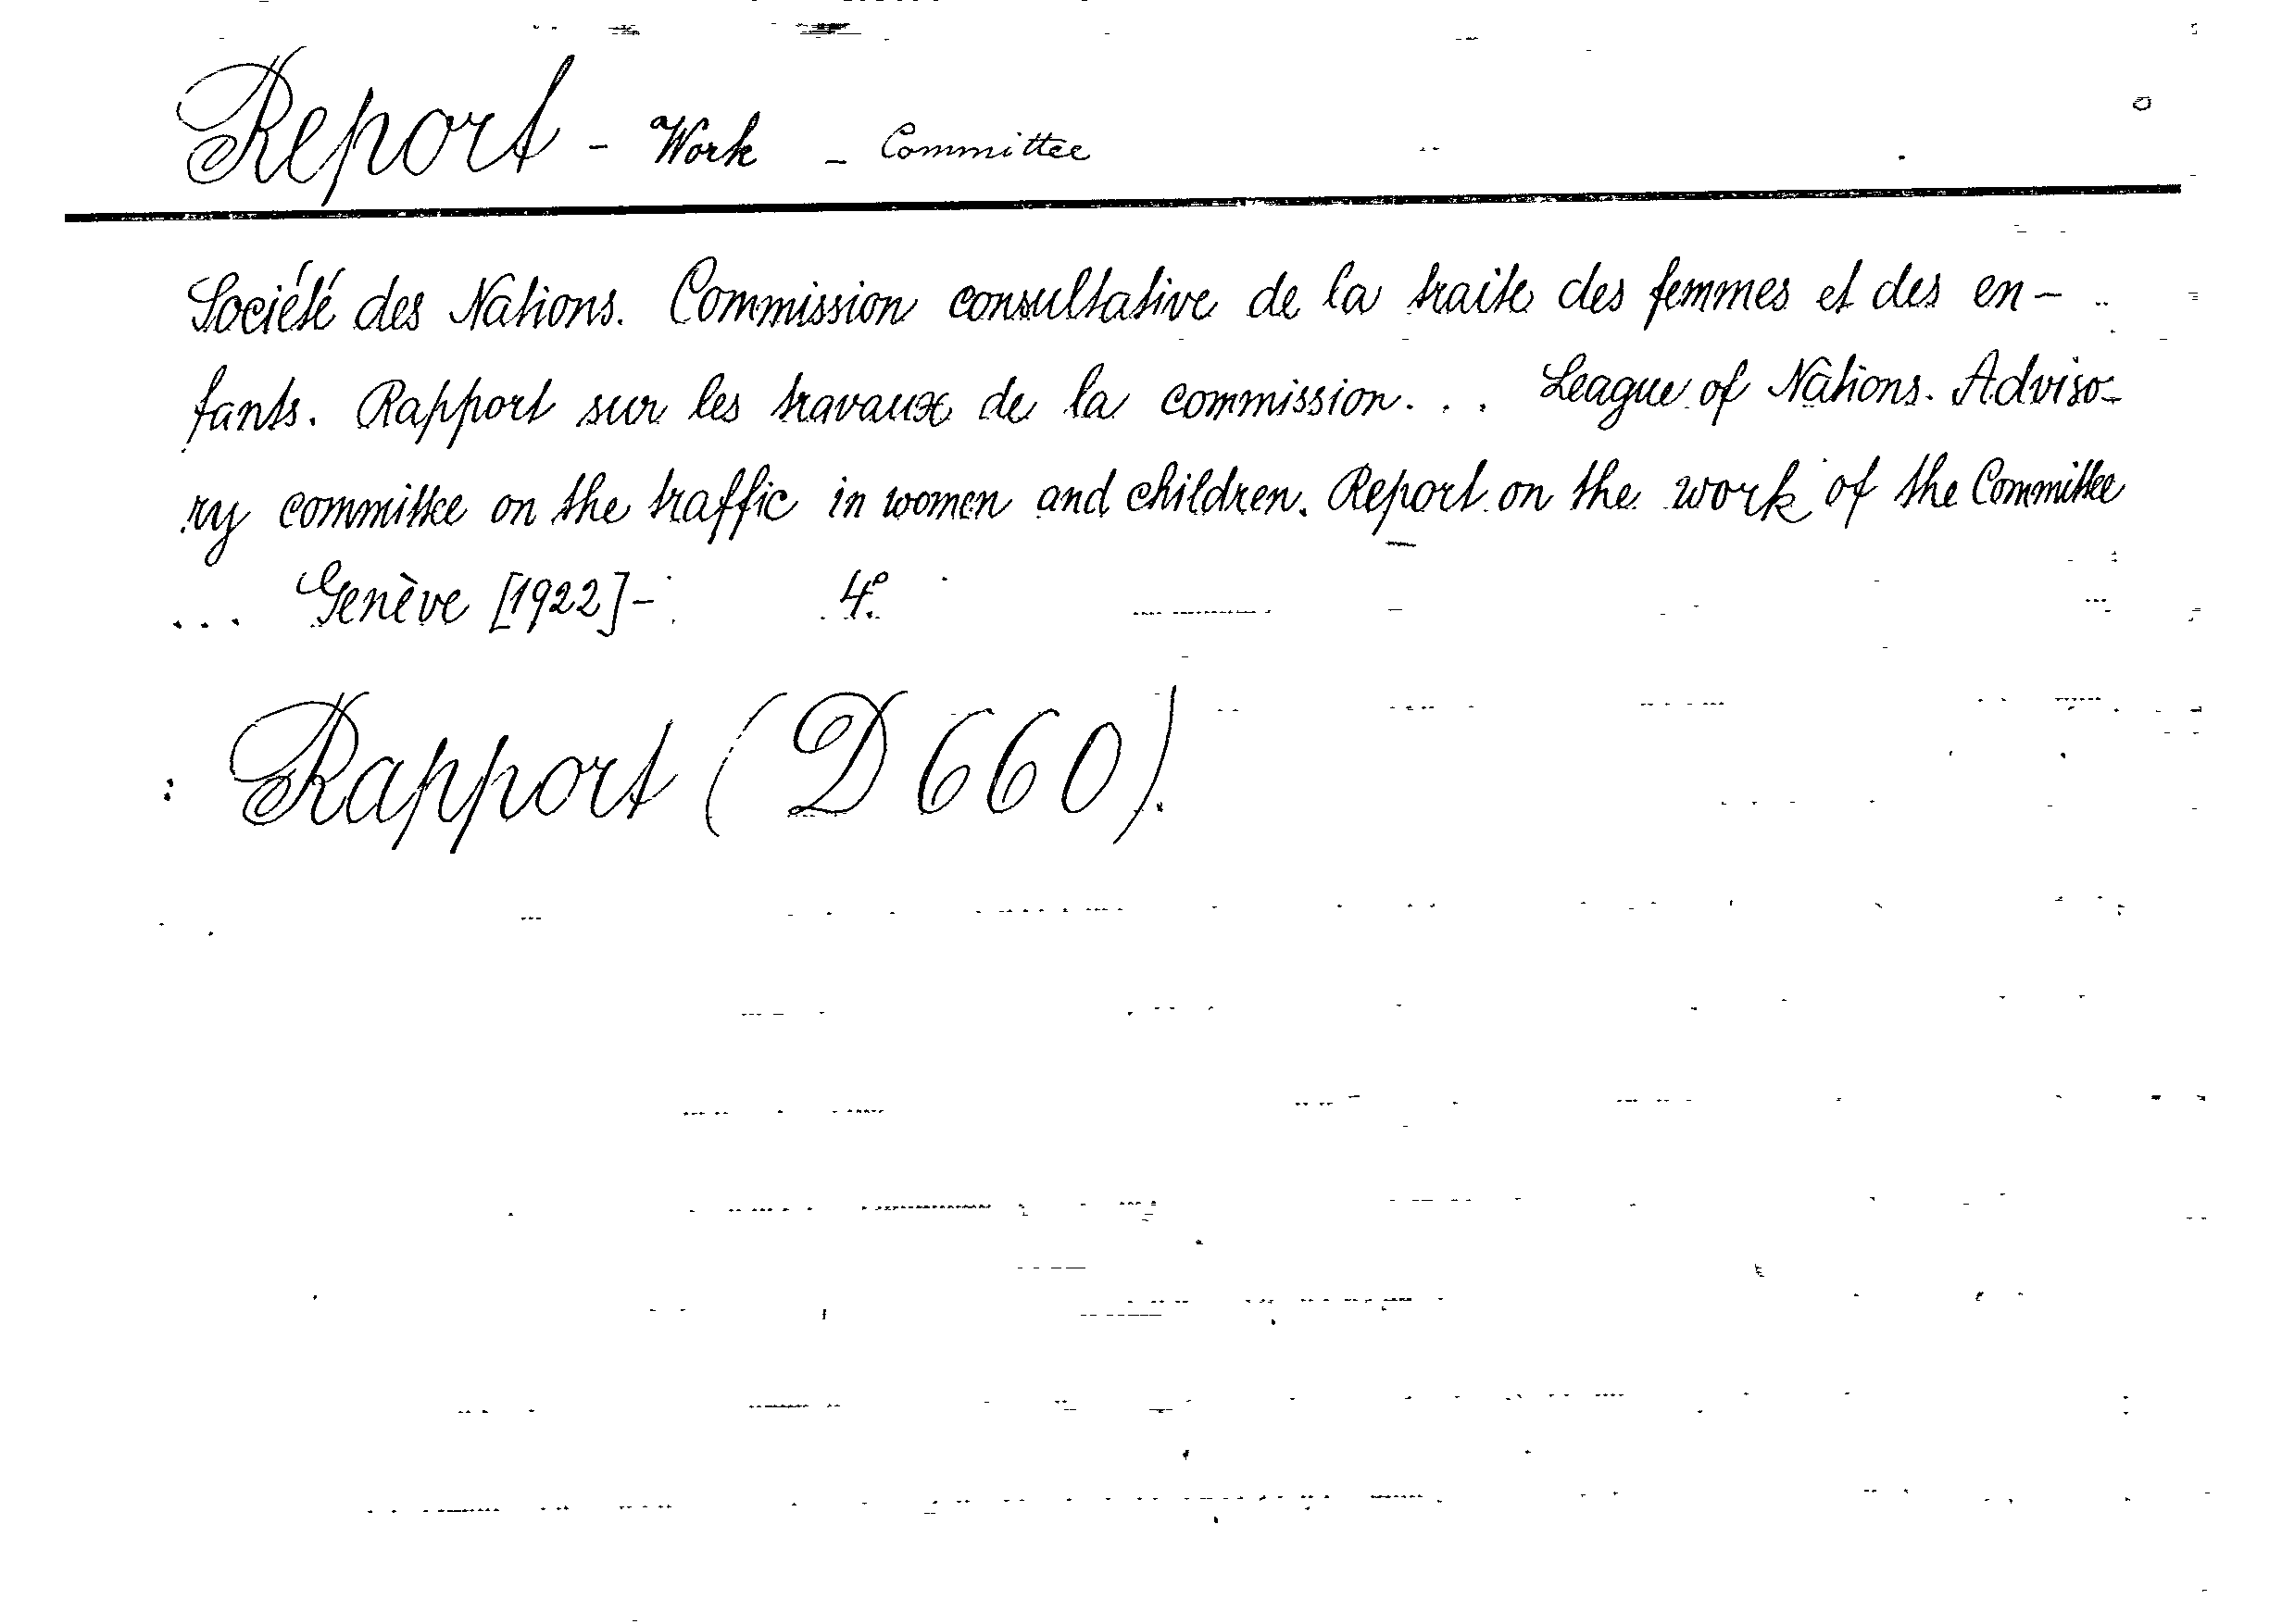 Report - Work - Committee
Société des Nations. Commission consultative de la traite des femmes et des en-
fants. Rapport sur les travaux de la commission... League of Nations. Adviso-
ry committee on the traffic in women and children. Report on the work of the Committee
... Genève [1922]- 4º.
: Rapport (D 660).